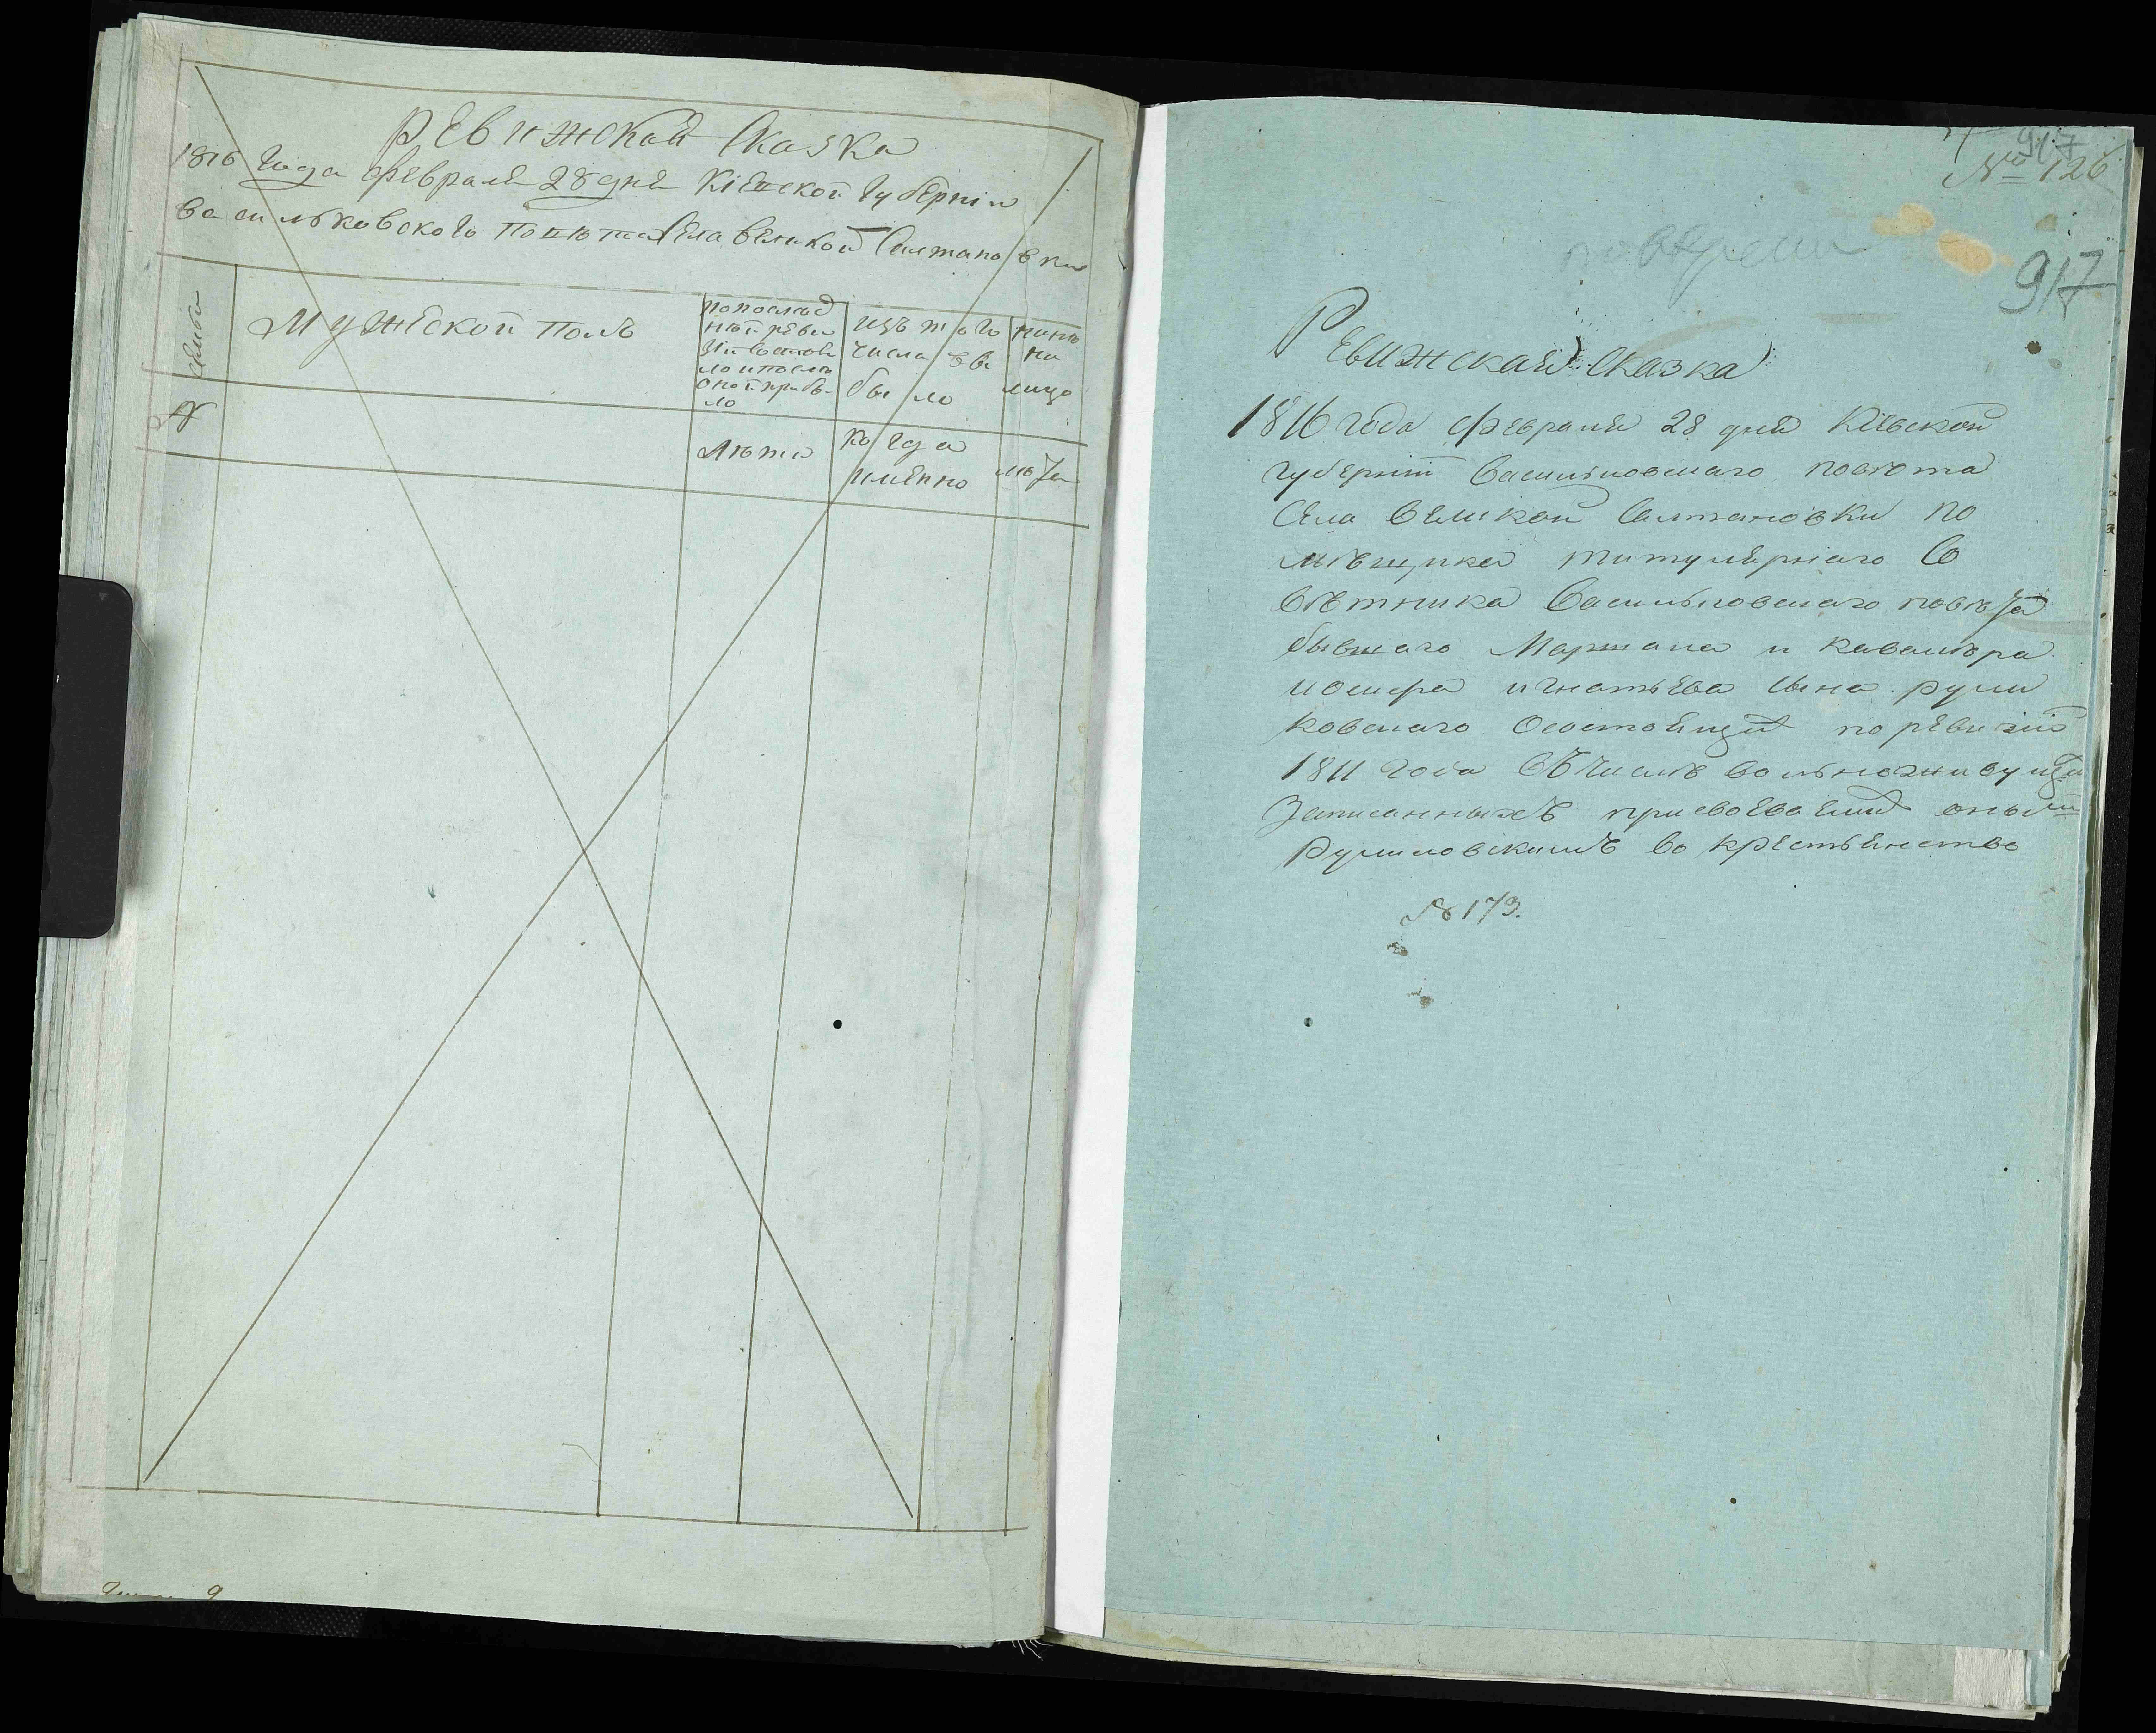 Ревижская Сказка
1816 года февраля 28 дня Кіевской Губерніи
васильковского повѣта Села великой Салтановки
Семьи
№
Мужеской полъ
по послѣд
ней реви
зіи состоя
ло и после
оной прибы
ло
изъ того
числа вы
было
нынѣ
на
лицо
Лѣта
когда
именно
лѣта
917
№ 126
917
Ревижская Сказка
1816 года февраля 28 дня Кіевской
губерніи Васильковскаго повѣта
Села Великой Салтановки по
мѣщика титулярнаго Со
вѣтника Васильковскаго повѣта
бывшаго Маршала и кавалѣра
игнатьева сына Рули
ковскаго о состоящих по ревизіи
1811 года въ числѣ вольноживущи
Записанныхъ присвоеваемих оным
Руликовскимъ во крестьянство
№ 173.